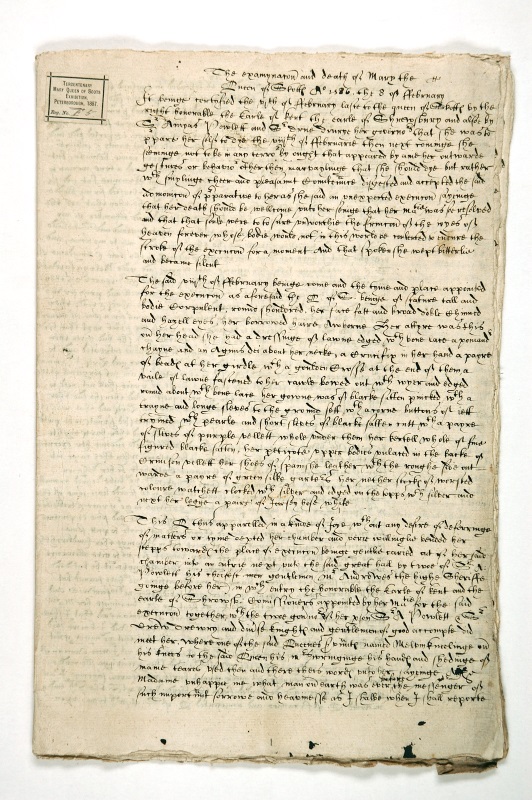 TERCENTENARY
MARY QUEEN OF SCOTS
EXHIBITION
PETERBOROUGH, 1887
Reg. No.
The examynacon and death of Mary the
Queen of Skotts Ao 1586 the 8 of ffebruary
It beinge certified the vjth of ffebruary laste to the queen of Skotts by the
right honorable the Earle of kent the earle of Shrewsbury and also by
Sr Amyas Powlett and Sr Drue Drurye her governors that she was to
prepare her selfe to dye the viijth of ffebruarie then next cominge she
seeminge not to be in any terror by ought that appeared by ane her outwarde
gesture or behavior other then marvaylinge that she should dye but rather
wth smylinge cheere and pleasant countenance digested and accepted the said
admonition of preparative to her as she said an unexpected execution sayinge
that her death should be welcome unto her seinge that her Matie was so resolved
and that that soule were to to farre unworthie the fruition of the ioyes of
heaven forever whose bodie would not in this world be content to endure the
stroke of the execution for a moment And that spoken she wept bitterlie
and became silent
The said viijth of ffebruary beinge come and the tyme and place appointed
for the execution as aforesaid the Q of S beinge of stature tall and
bodie corpulent, round shouldred, her face fatt and broad doble chinned
and hazell eyes, her borrowed haire Auborne Her attyre was this
on her head she had a dressinge of lawne edged wth bone lace a pomander
chayne and an Agnus dei about her necke, a Crucifix in her hand a payre
of beads at her girdle wth a goulden Crosse at the end of them a
vaile of lawne fastened to her caule bowed out wth wyer and edged
round about wth bone lace her gowne was of blacke satten printed wth a
trayne and longe sleves to the ground sett wth acorne buttons of jett
trymed wth pearle and short sleves of blacke satten cutt wth a payre
of sleves of purple vellett whole under them her kertell whole of fine
figured blacke satten, her petticote upper bodies unlaced in the backe of
Crimison vellett her shoes of spanishe leather wth the roughe side out-
warde a payre of green silke garters her nether stockes of worsted
coloure watchett clocked wth silver and edged on the topps wth silver and
next her legge a payre of Jersey hose, white
This Q thus apparelled in a kinde of joye wth out any desire of deferringe
of matters or tyme departed her chamber and verie willinglie bended her
stepps towardes the place of execution beinge gentlie caried out of her said
chamber into an entrie next unto the said great hall by twoe of Sr A
Powletts his cheifest men gentlemen Mr Andrewes the highe Sheriffe
goinge before her, in wch entry the honorable the Earle of kent and the
earle of Shrowsb Comissioners appointed by her Matie for the said
execution together wth the twoe governors of her person Sr A Powlett Sr
Drue Drewry and divers knights and gentlemen of good accompte did
meet her, where one of the said Queenes servants named Melvin kneelinge on
his knees to the said Queen his Mrs wringinge his hands and sheddinge of
manie teares used then and there theis words unto her, sayinge
Madame unhappie me what man on earth was ever before the messenger of
such important sorrowe and heavinesse as I shalbe when I shall reporte